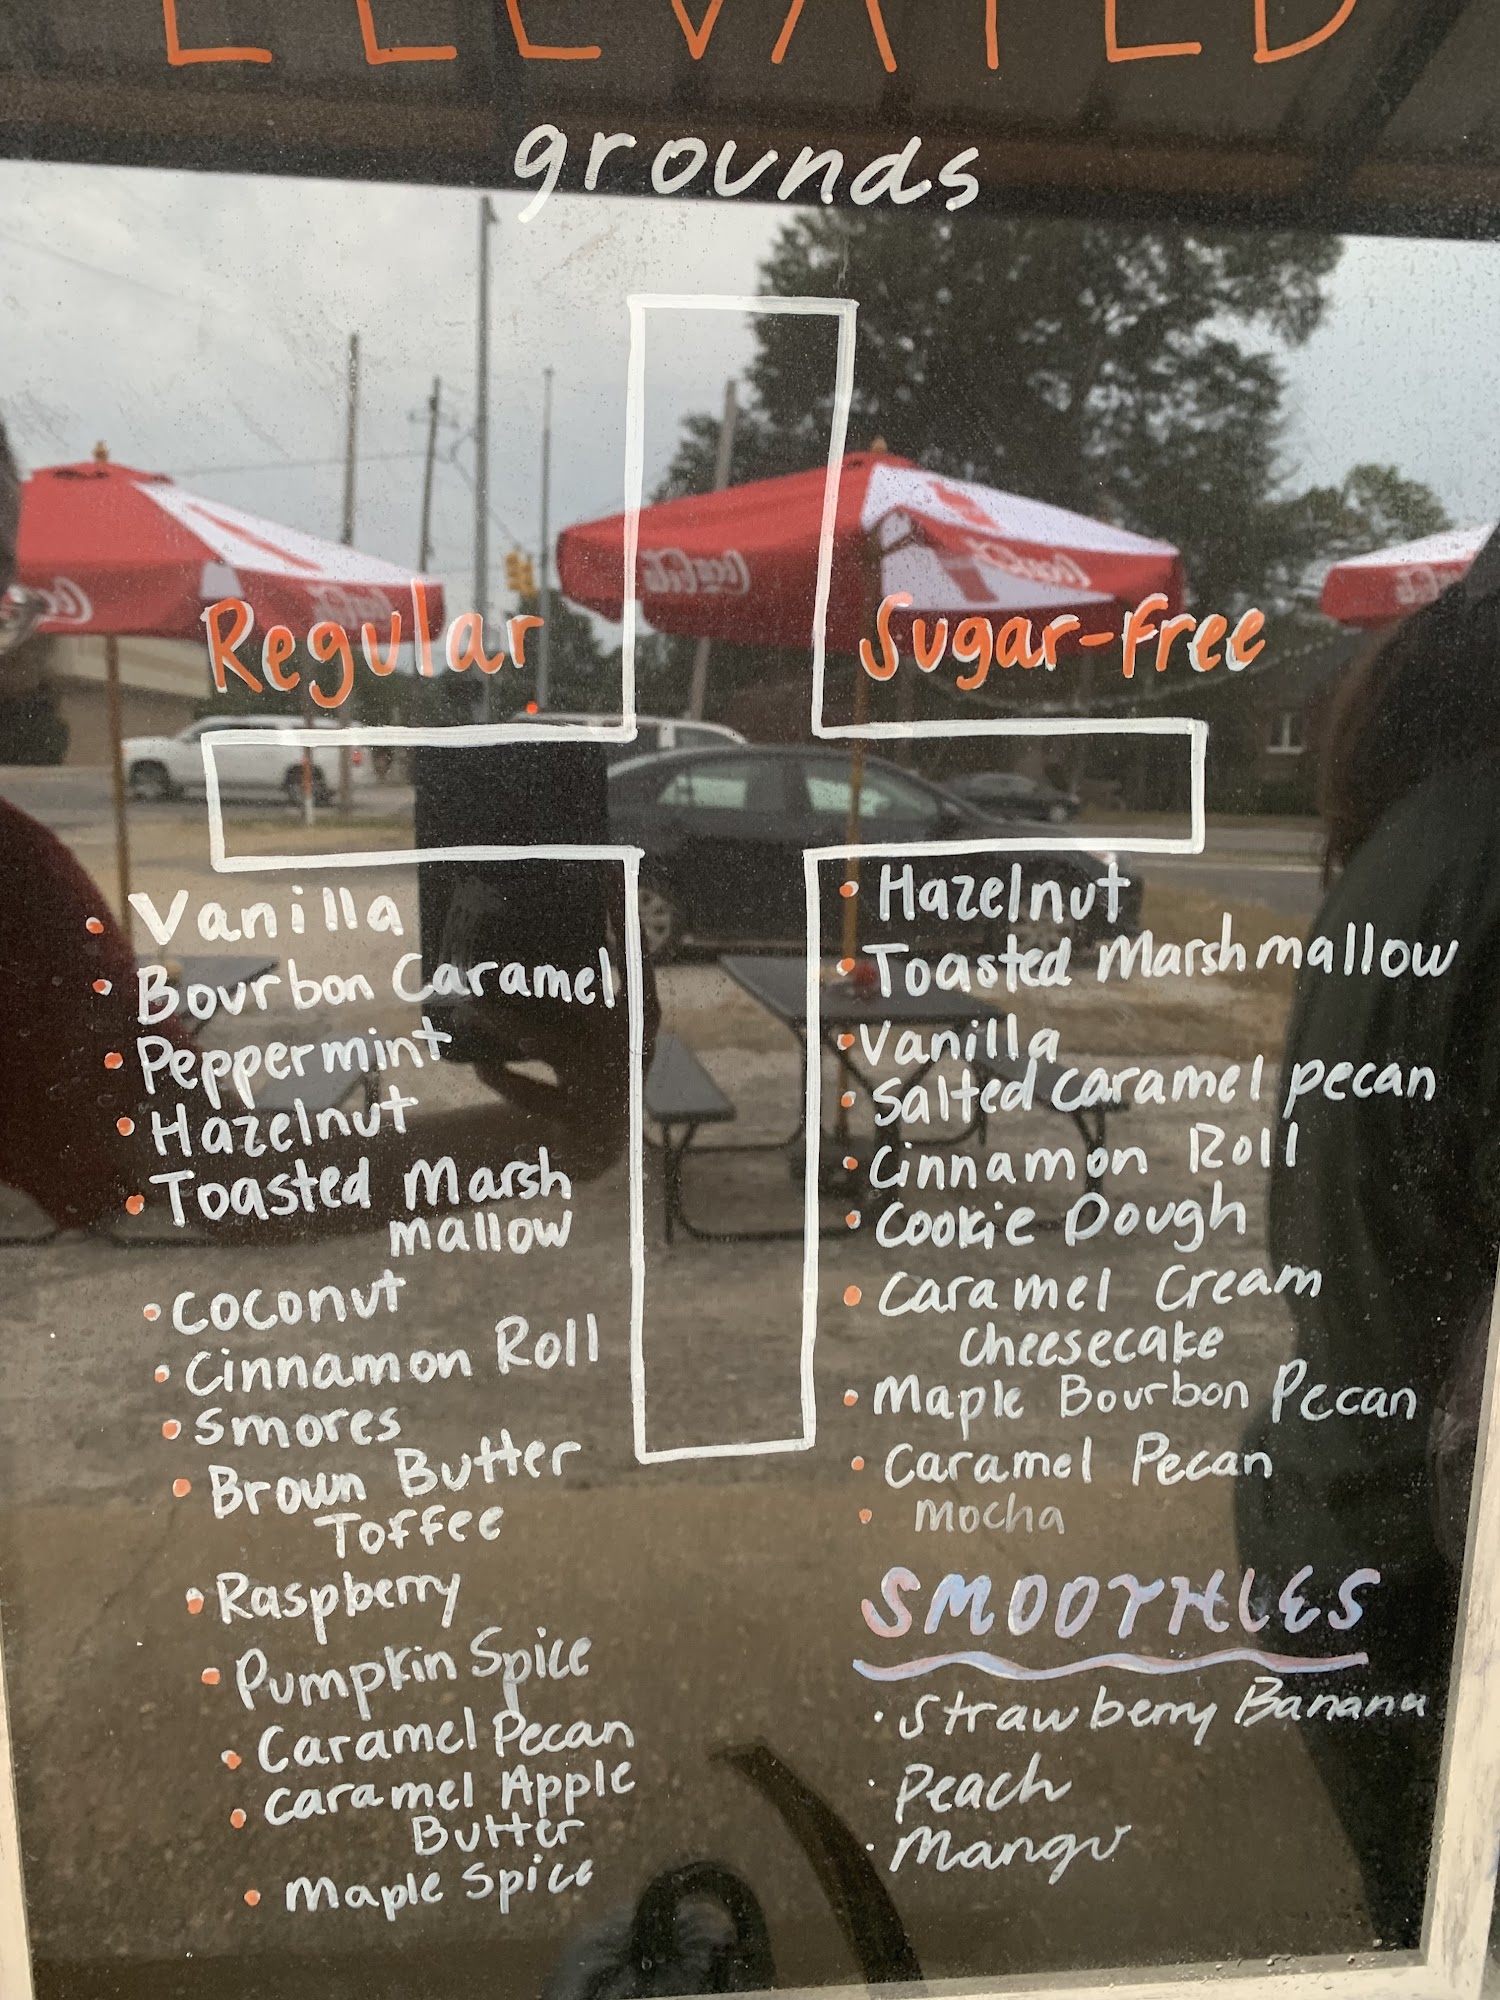 ELEVATED
grounds
Regular
• Vanilla
• Bourbon Caramel
• Peppermint
• Hazelnut
• Toasted Marsh
mallow
• Coconut
• Cinnamon Roll
• Smores
• Brown Butter
Toffee
• Raspberry
• Pumpkin Spice
• Caramel Pecan
• Caramel Apple
Butter
• Maple Spice
Sugar-Free
• Hazelnut
• Toasted Marshmallow
• Vanilla
• Salted Caramel pecan
• Cinnamon Roll
• Cookie Dough
• Caramel Cream
Cheesecake
• Maple Bourbon Pecan
• Caramel Pecan
• Mocha
SMOOTHIES
• Strawberry Banana
• Peach
• Mango
Coca-Cola
Coca-Cola
Coca-Cola
Coca-Cola
Coca-Cola